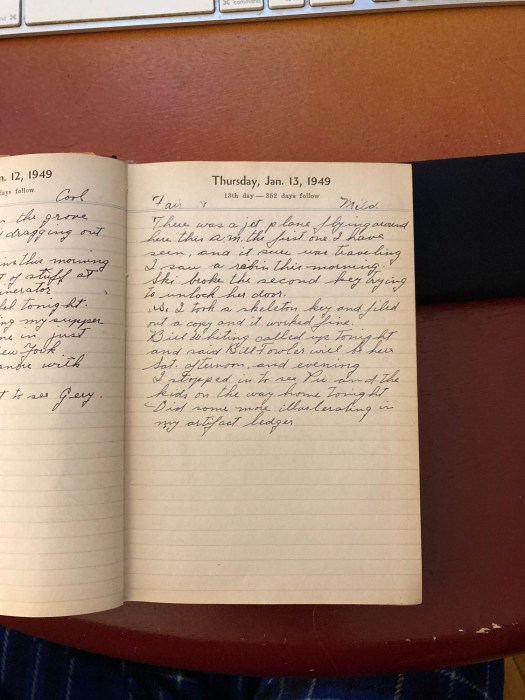 n. 12, 1949
days follow
Cool
the grove
dragging out
this morning
of stuff at
nerator.
tonight.
my supper
in just
New York
with
to see Gery.
Thursday, Jan. 13, 1949
13th day — 352 days follow
Fair & Mild
There was a jet plane flying around
here this A.M. the first one I have
seen, and it sure was traveling
I saw a robin this morning.
Ski broke the second key trying
to unlock her door.
So I took a skeleton key and filed
out a copy and it worked fine.
Bill Whiting called up tonight
and said Bill Fowler will be here
Sat. afternoon, and evening
I stopped in to see Pic and the
kids on the way home tonight
Did some more illuelerating in
my artifact ledger
command